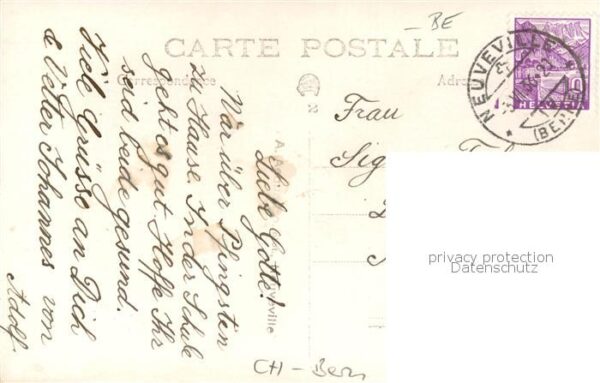 BE
CARTE POSTALE
Correspondance
Adre
NEUVEVILLE
(BERN)
10
HELVETIA
Frau
Sig
Liebe Gotte!
War über Pfingsten
zu Hause. In der Schule
geht es gut. Hoffe Ihr
seid beide gesund.
Viele Grüsse an Dich
& Vetter Johannes von
Adolf
privacy protection
Datenschutz
CH - Bern